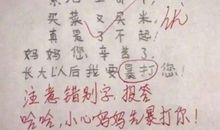 买菜又买米
真是了不起
妈妈您辛苦了
长大以后我要暴打您!
注意错别字 报答
哈哈,小心妈妈先暴打你!